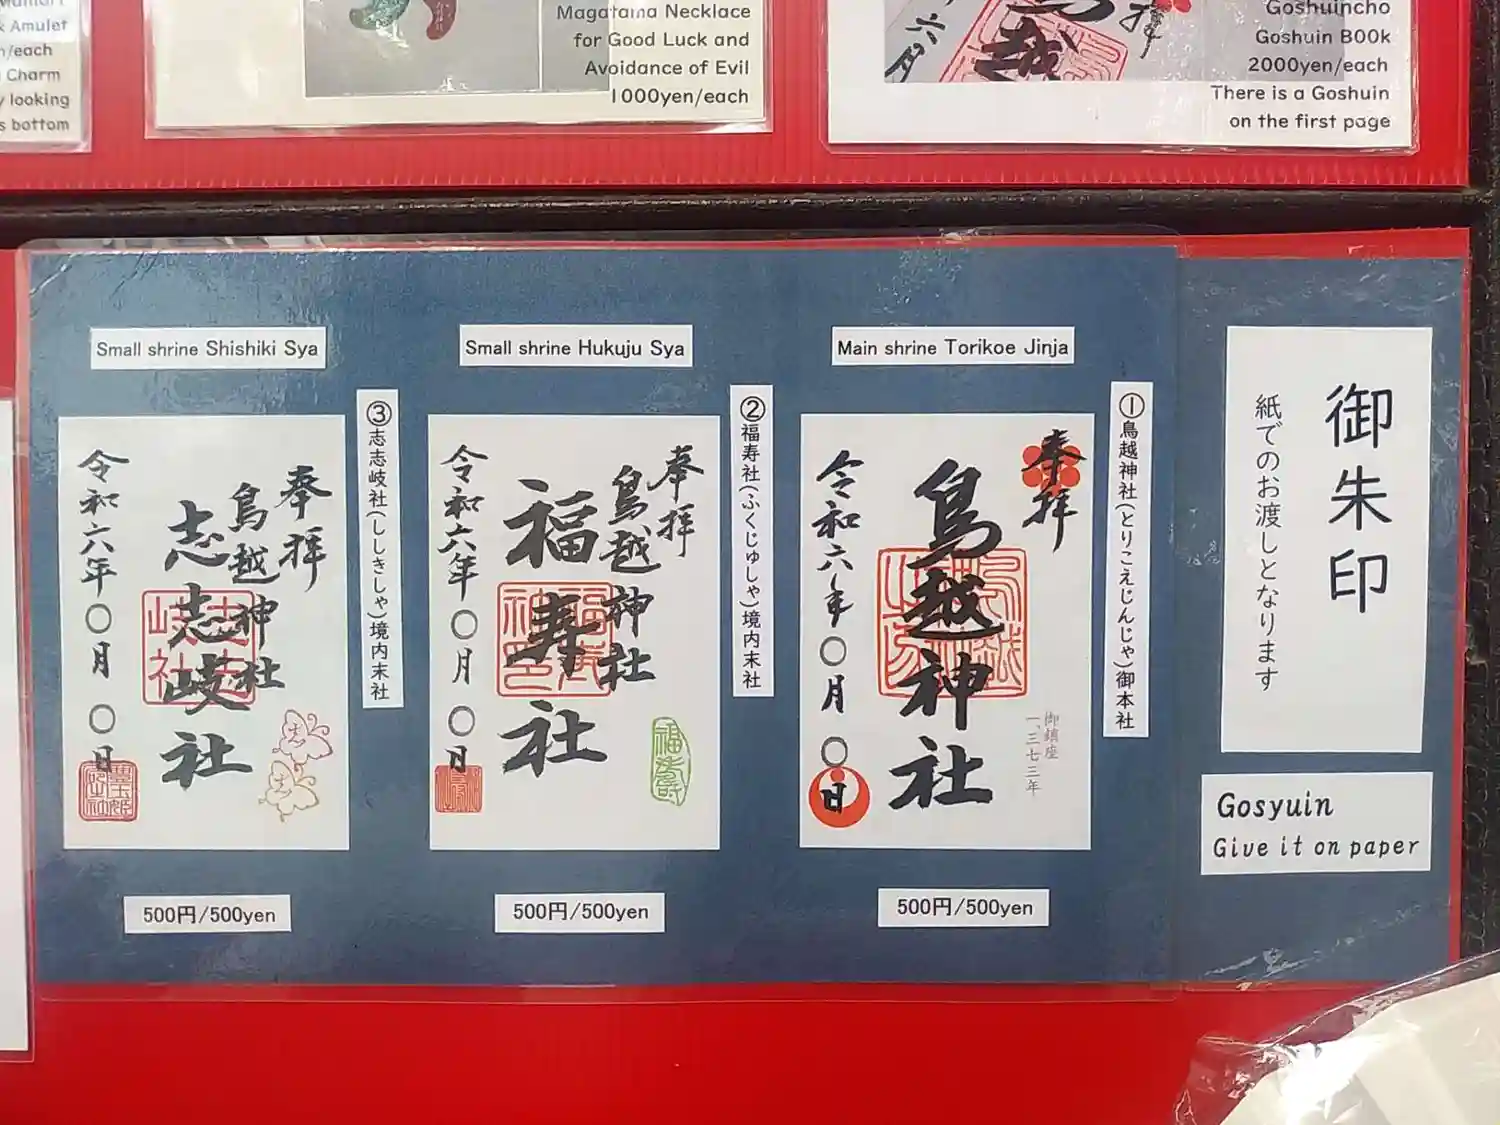 Amulet
/each
Charm
looking
s bottom
Magatama Necklace
for Good Luck and
Avoidance of Evil
1000yen/each
Goshuincho
Goshuin B00k
2000yen/each
There is a Goshuin
on the first page
御朱印
紙でのお渡しとなります
Gosyuin
Give it on paper
Main shrine Torikoe Jinja
①鳥越神社(とりこえじんじゃ)御本社
奉拝
鳥越神社
御鎮座
一、三七三年
令和六年〇月〇日
500円/500yen
Small shrine Hukuju Sya
②福寿社(ふくじゅしゃ)境内末社
奉拝
鳥越神社
福寿社
令和六年〇月〇日
500円/500yen
Small shrine Shishiki Sya
③志志岐社(ししきしゃ)境内末社
奉拝
鳥越神社
志志岐社
令和六年〇月〇日
500円/500yen